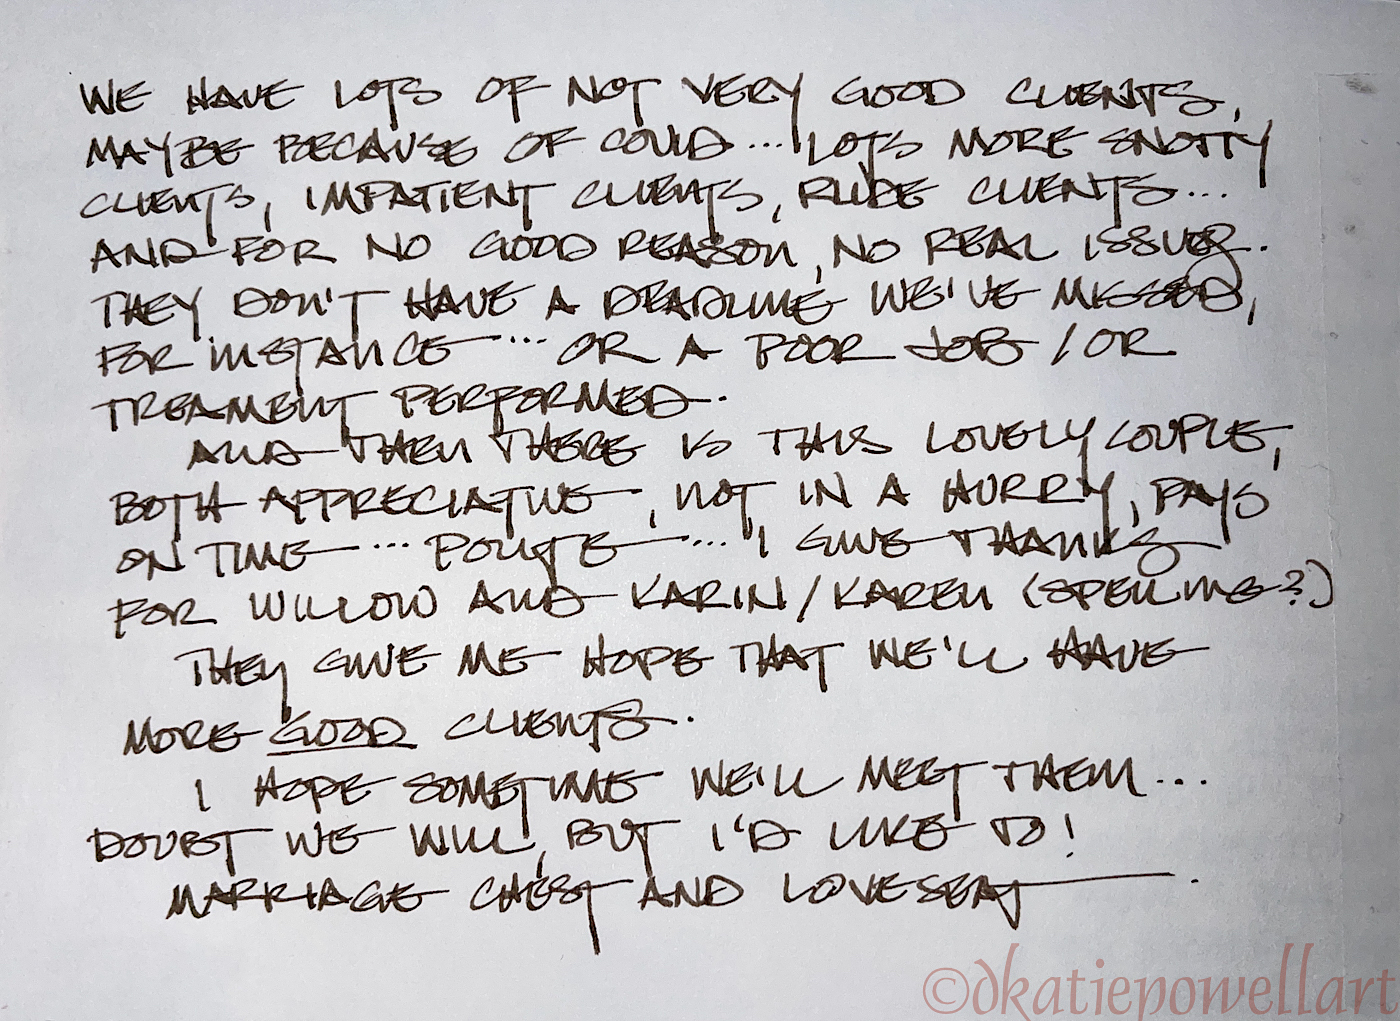 WE HAVE LOTS OF NOT VERY GOOD CLIENTS,
MAYBE BECAUSE OF COVID... LOTS MORE SNOTTY
CLIENTS, IMPATIENT CLIENTS, RUDE CLIENTS...
AND FOR NO GOOD REASON, NO REAL ISSUES.
THEY DON'T HAVE A DEADLINE WE'VE MISSED,
FOR INSTANCE... OR A POOR JOB/OR
TREAMENT PERFORMED.
AND THEN THERE IS THIS LOVELY COUPLE,
BOTH APPRECIATIVE, NOT IN A HURRY, PAYS
ON TIME... POLITE... I GIVE THANKS
FOR WILLOW AND KARIN/KAREN (SPELLING?)
THEY GIVE ME HOPE THAT WE'LL HAVE
MORE GOOD CLIENTS.
I HOPE SOMETIME WE'LL MEET THEM...
DOUBT WE WILL, BUT I'D LIKE TO!
MARRIAGE CHEST AND LOVESEAT.
©dkatiepowellart